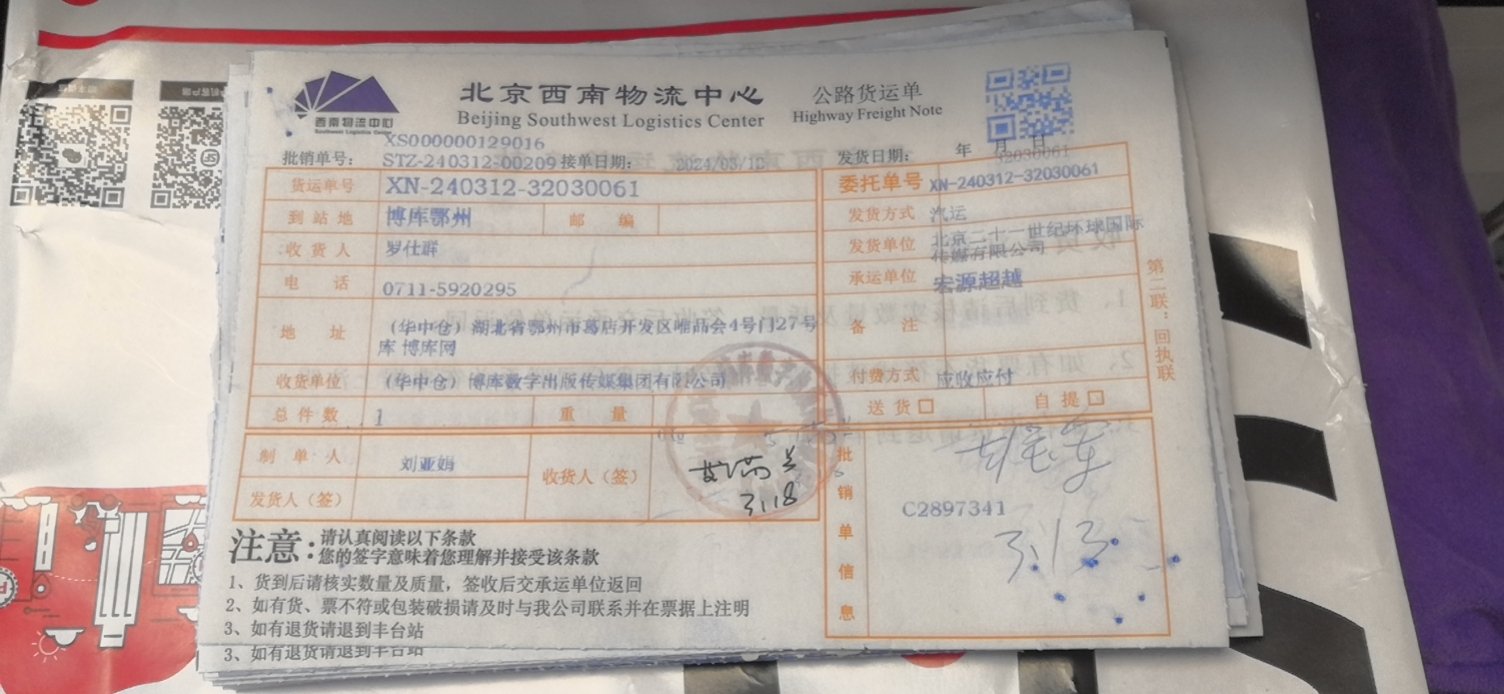 西南物流中心
Southwest Logistics Center
北京西南物流中心
Beijing Southwest Logistics Center
公路货运单
Highway Freight Note
XS000000129016
批销单号: STZ-240312-00209 接单日期: 2024/03/12 发货日期: 年 月 日
S3030061
货运单号 XN-240312-32030061 委托单号 XN-240312-32030061
到站地 博库鄂州 邮编 发货方式 汽运
收货人 罗仕群 发货单位 北京二十一世纪环球国际
传媒有限公司
电话 0711-5920295 承运单位 宏源超越
地址 (华中仓)湖北省鄂州市葛店开发区唯品会4号门27号
库 博库网
备注
收货单位 (华中仓)博库数字出版传媒集团有限公司 付费方式 应收应付
总件数 1 重量 送货 自提
制单人 刘亚娟 收货人(签)
3.18
发货人(签)
批销单信息 C2897341
3.13
第二联:回执联
注意:请认真阅读以下条款
您的签字意味着您理解并接受该条款
1、货到后请核实数量及质量,签收后交承运单位返回
2、如有货、票不符或包装破损请及时与我公司联系并在票据上注明
3、如有退货请退到丰台站
3、如有退货请退到丰台站